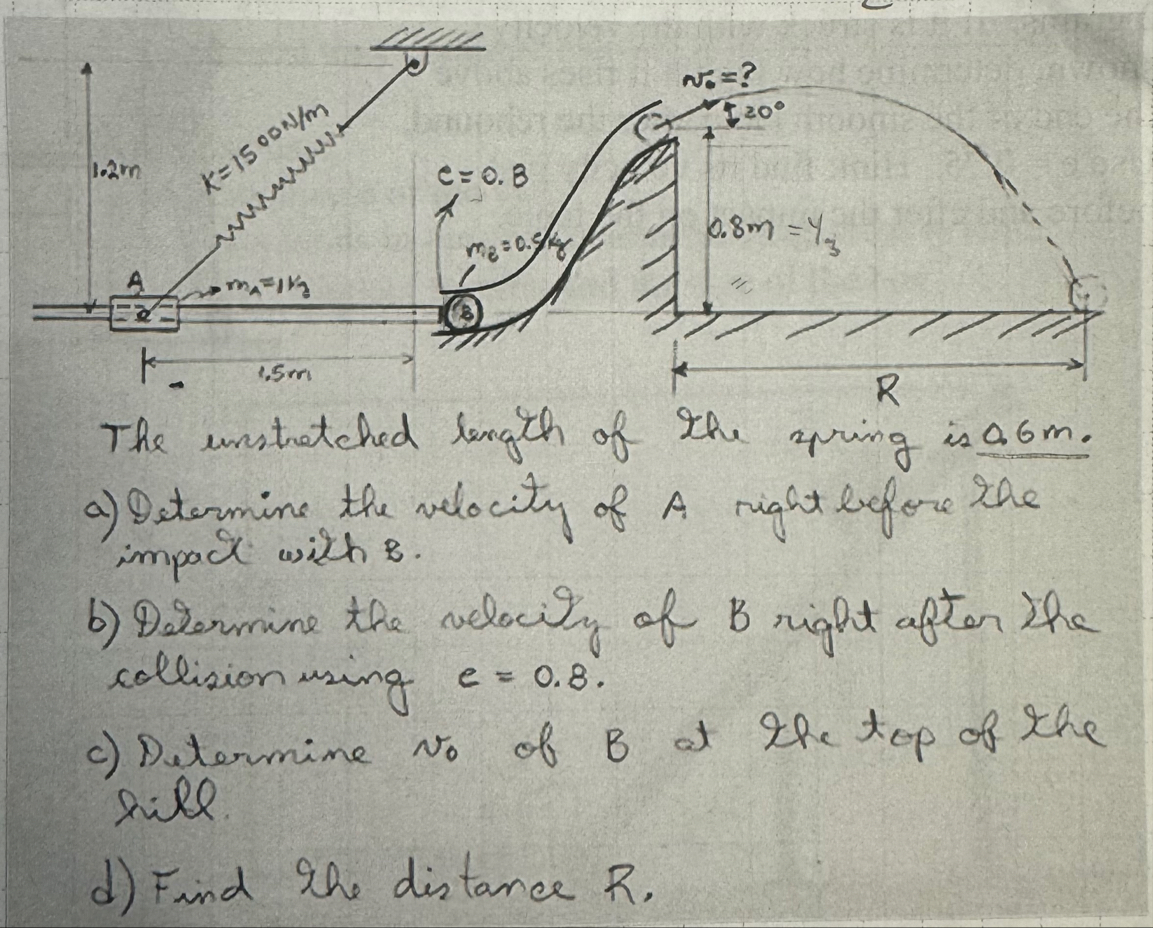 v₀=?
20°
K=1500N/m
1.2m
e=0.8
0.8m = y₃
m_B=0.5kg
A
m_A=1kg
B
1.5m
R
The unstretched length of the spring is 0.6m.
a) Determine the velocity of A right before the
impact with B.
b) Determine the velocity of B right after the
collision using e = 0.8.
c) Determine v₀ of B at the top of the
hill.
d) Find the distance R.